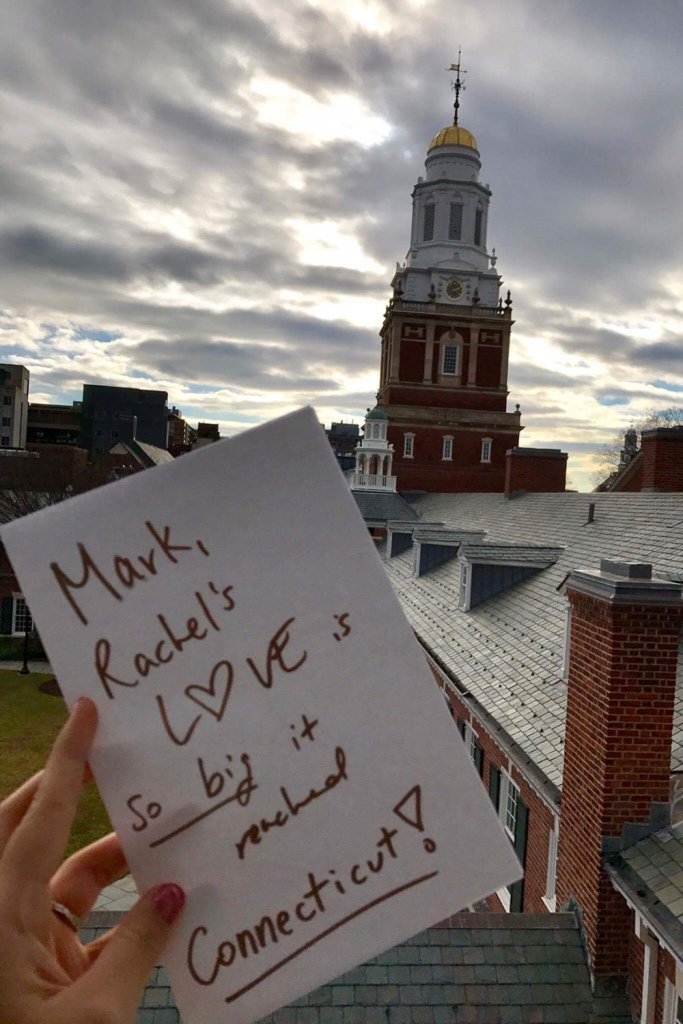 Mark,
Rachel's
L♡VE is
so big it
reached
Connecticut!